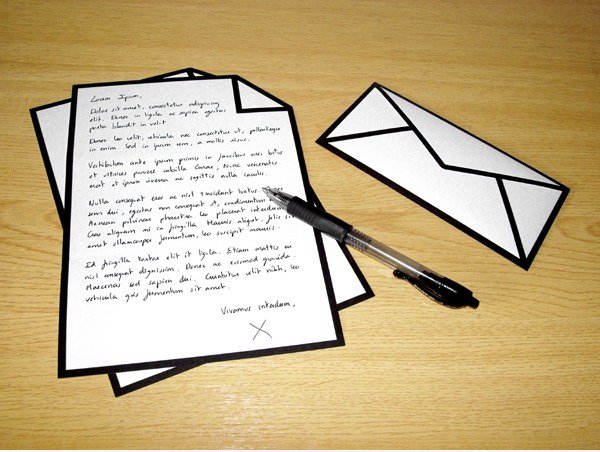 Lorem Ipsum,
Dolor sit amet, consectetur adipiscing
elit. Donec in ligula ac sapien egestas
porta blandit in velit.
Donec leo velit, vehicula nec consectetur ut, pellentesque
in enim. Sed in ipsum sem, a mollis risus.
Vestibulum ante ipsum primis in faucibus orci luctus
et ultrices posuere cubilia Curae; Nunc venenatis
erat et ipsum viverra ac sagittis nulla iaculis.
Nulla consequat eros ac nisl tincidunt luctus
sem dui, egestas non consequat a, condimentum
Aenean pulvinar pharetra leo placerat interdum
Cras aliquam mi in fringilla. Mauris aliquet, felis sit
amet ullamcorper fermentum, leo suscipit mauris.
Id fringilla tortor elit it ligula. Etiam mattis eu
nisl consequat dignissim. Donec ac euismod gravida.
Maecenas sed sapien dui. Curabitur velit nibh, leo
vehicula quis fermentum sit amet.
Vivamus interdum,
X